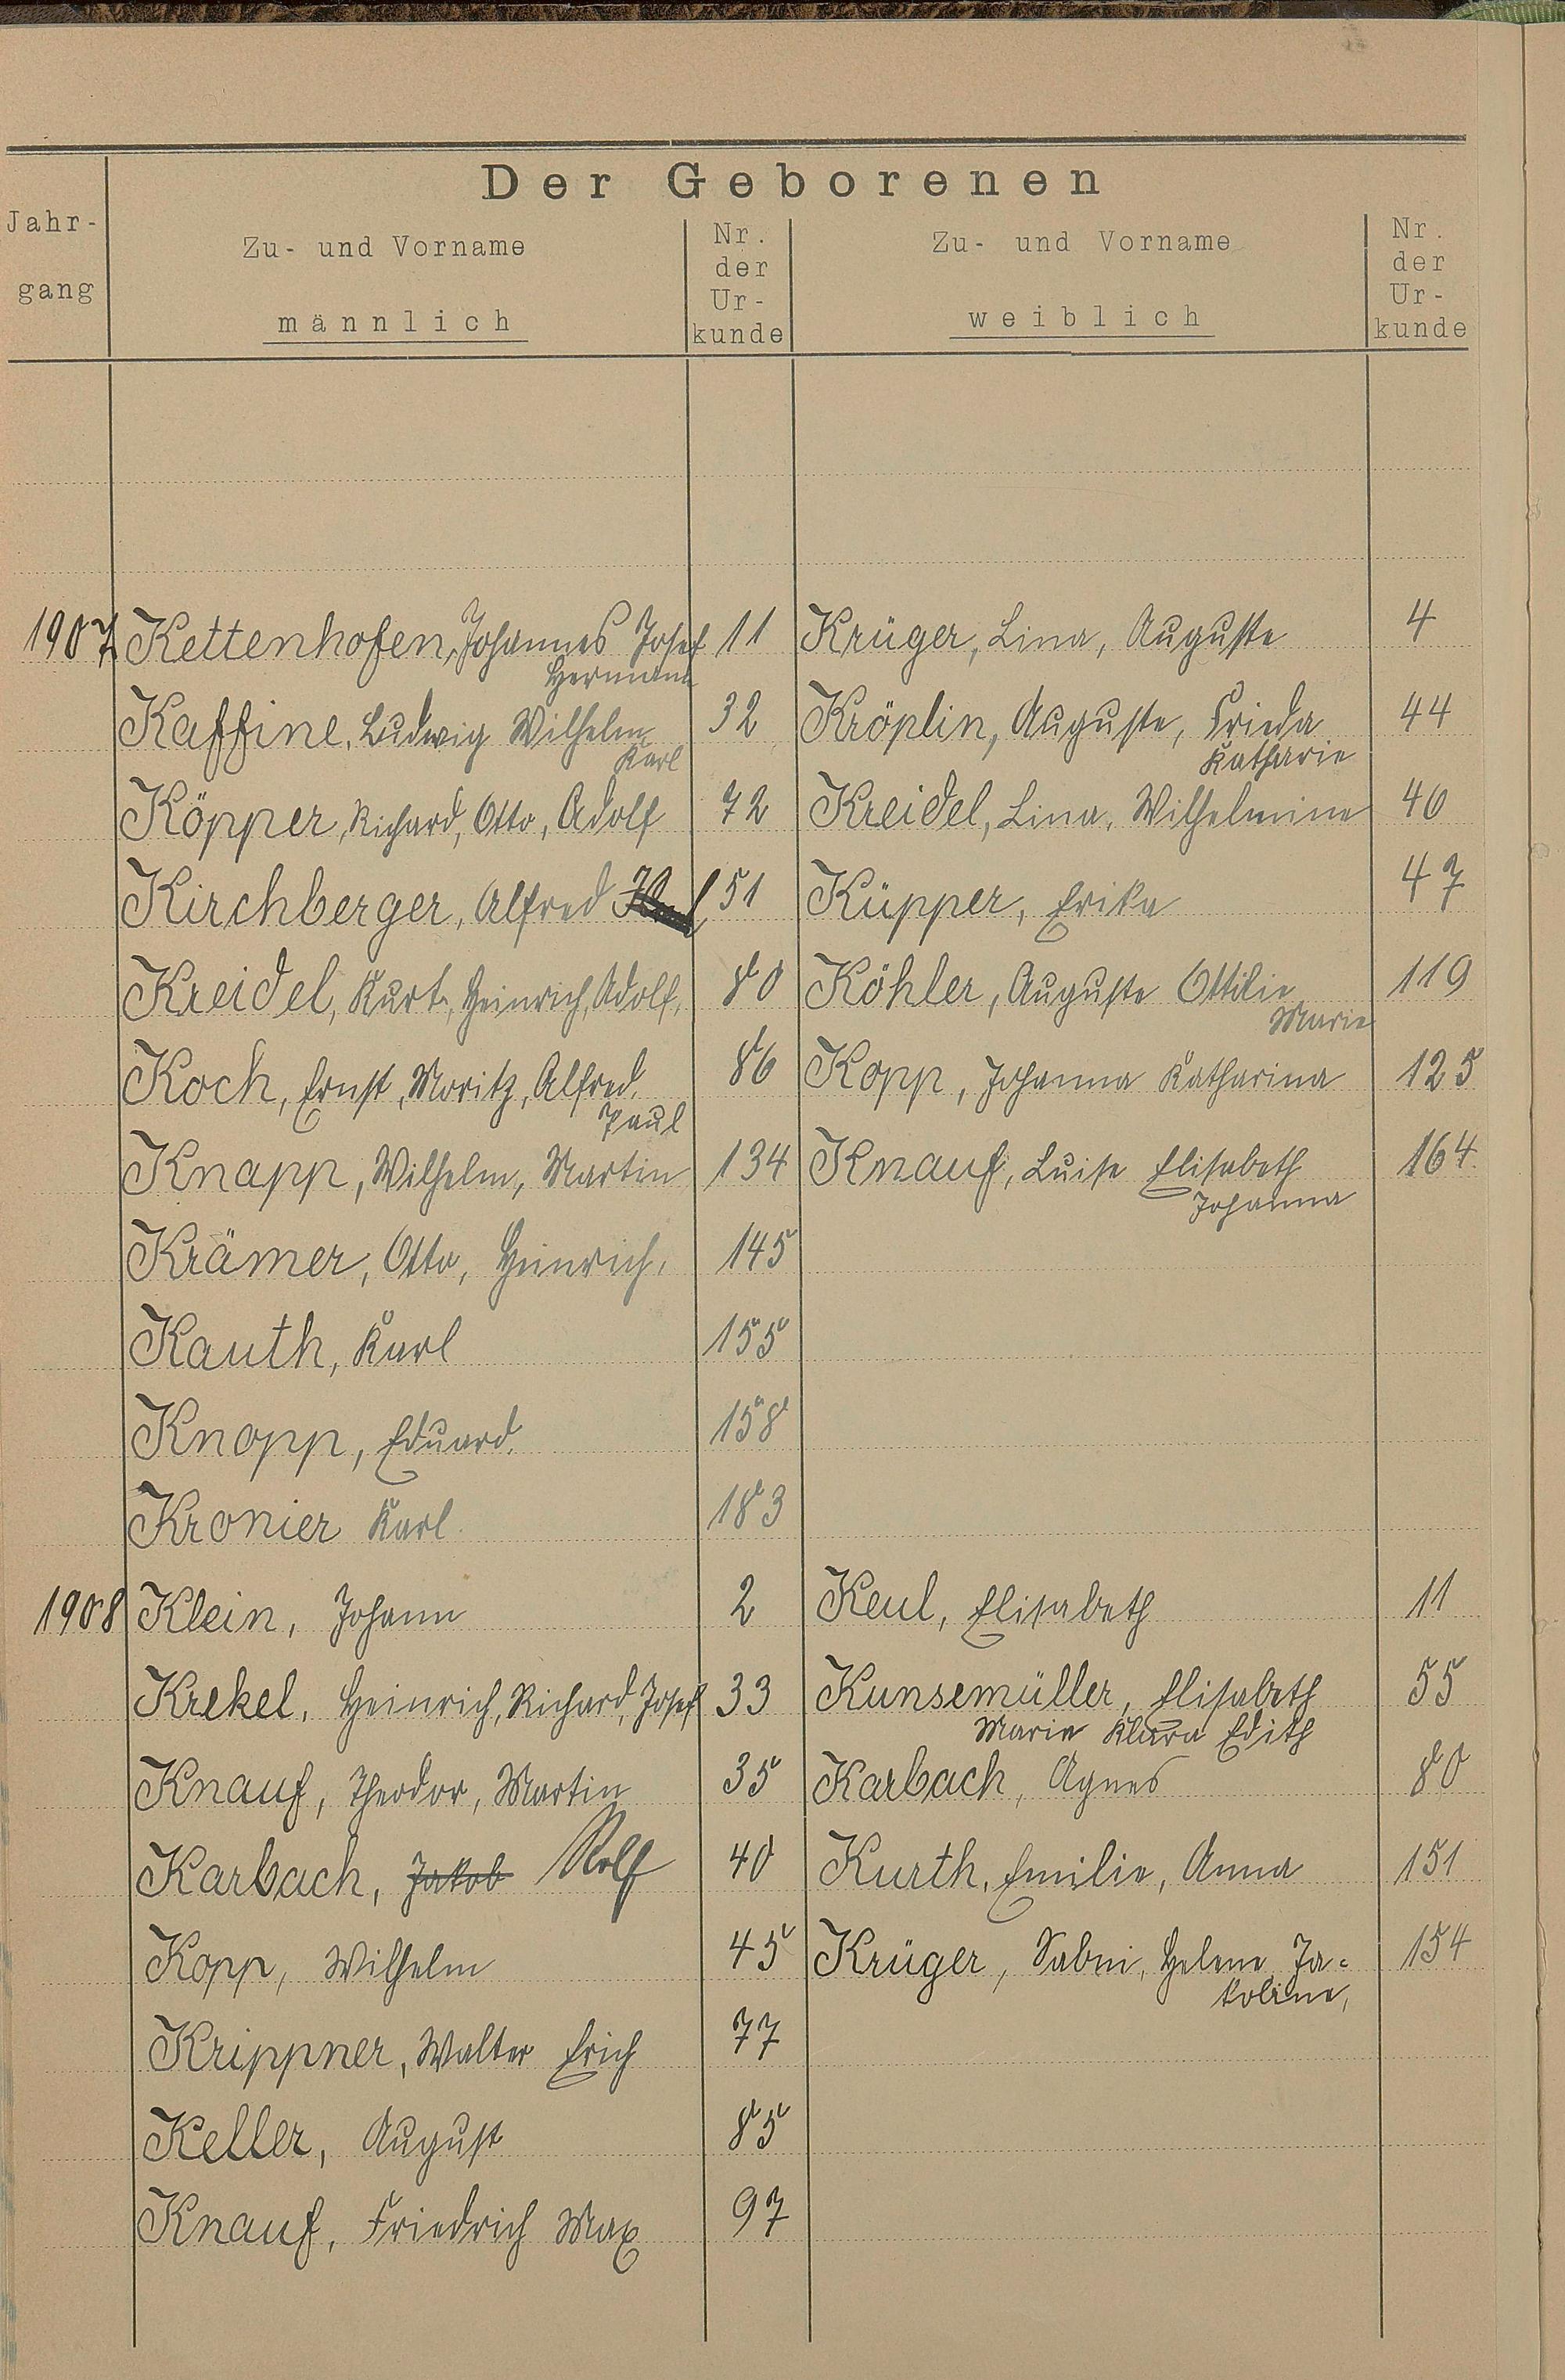 Der Geborenen
Jahr-
gang
Zu- und Vorname
männlich
Nr.
der
Ur-
kunde
Zu- und Vorname
weiblich
Nr.
der
Ur-
kunde
1907 Kettenhofen, Johannes Josef 11 Krüger, Lina, Auguste 4
Hermann
Kaffine, Ludwig Wilhelm 32 Kröplin, Auguste, Frieda 44
Karl Katharie
Köpper, Richard, Otto, Adolf 72 Kreidel, Lina, Wilhelmine 40
Kirchberger, Alfred 51 Küpper, Erika 47
Kreidel, Kurt, Heinrich, Adolf, 80 Köhler, Auguste Ottilie 119
Marie
Koch, Ernst, Moritz, Alfred, 86 Kopp, Johanna Katharina 125
Paul
Knapp, Wilhelm, Martin 134 Knauf, Luise Elisabeth 164
Johanna
Krämer, Otto, Heinrich, 145
Kauth, Karl 155
Knopp, Eduard. 158
Kronier Karl 183
1908 Klein, Johann 2 Keul, Elisabeth 11
Krekel, Heinrich, Richard, Josef 33 Kunsemüller, Elisabeth 55
Marie Klara Edith
Knauf, Theodor, Martin 35 Karbach, Agnes 80
Karbach, Jakob Rolf 40 Kurth, Emilie, Anna 151
Kopp, Wilhelm 45 Krüger, Sabni, Helene Ja= 154
kobine,
Krippner, Walter Erich 77
Keller, August 85
Knauf, Friedrich Max 97